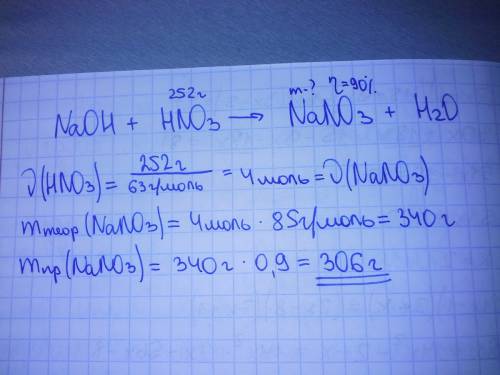 252г m-? η=90%
NaOH + HNO₃ → NaNO₃ + H₂O
ν(HNO₃) = 252г / 63г/моль = 4моль = ν(NaNO₃)
mтеор(NaNO₃) = 4моль · 85г/моль = 340г
mпр(NaNO₃) = 340г · 0,9 = 306г